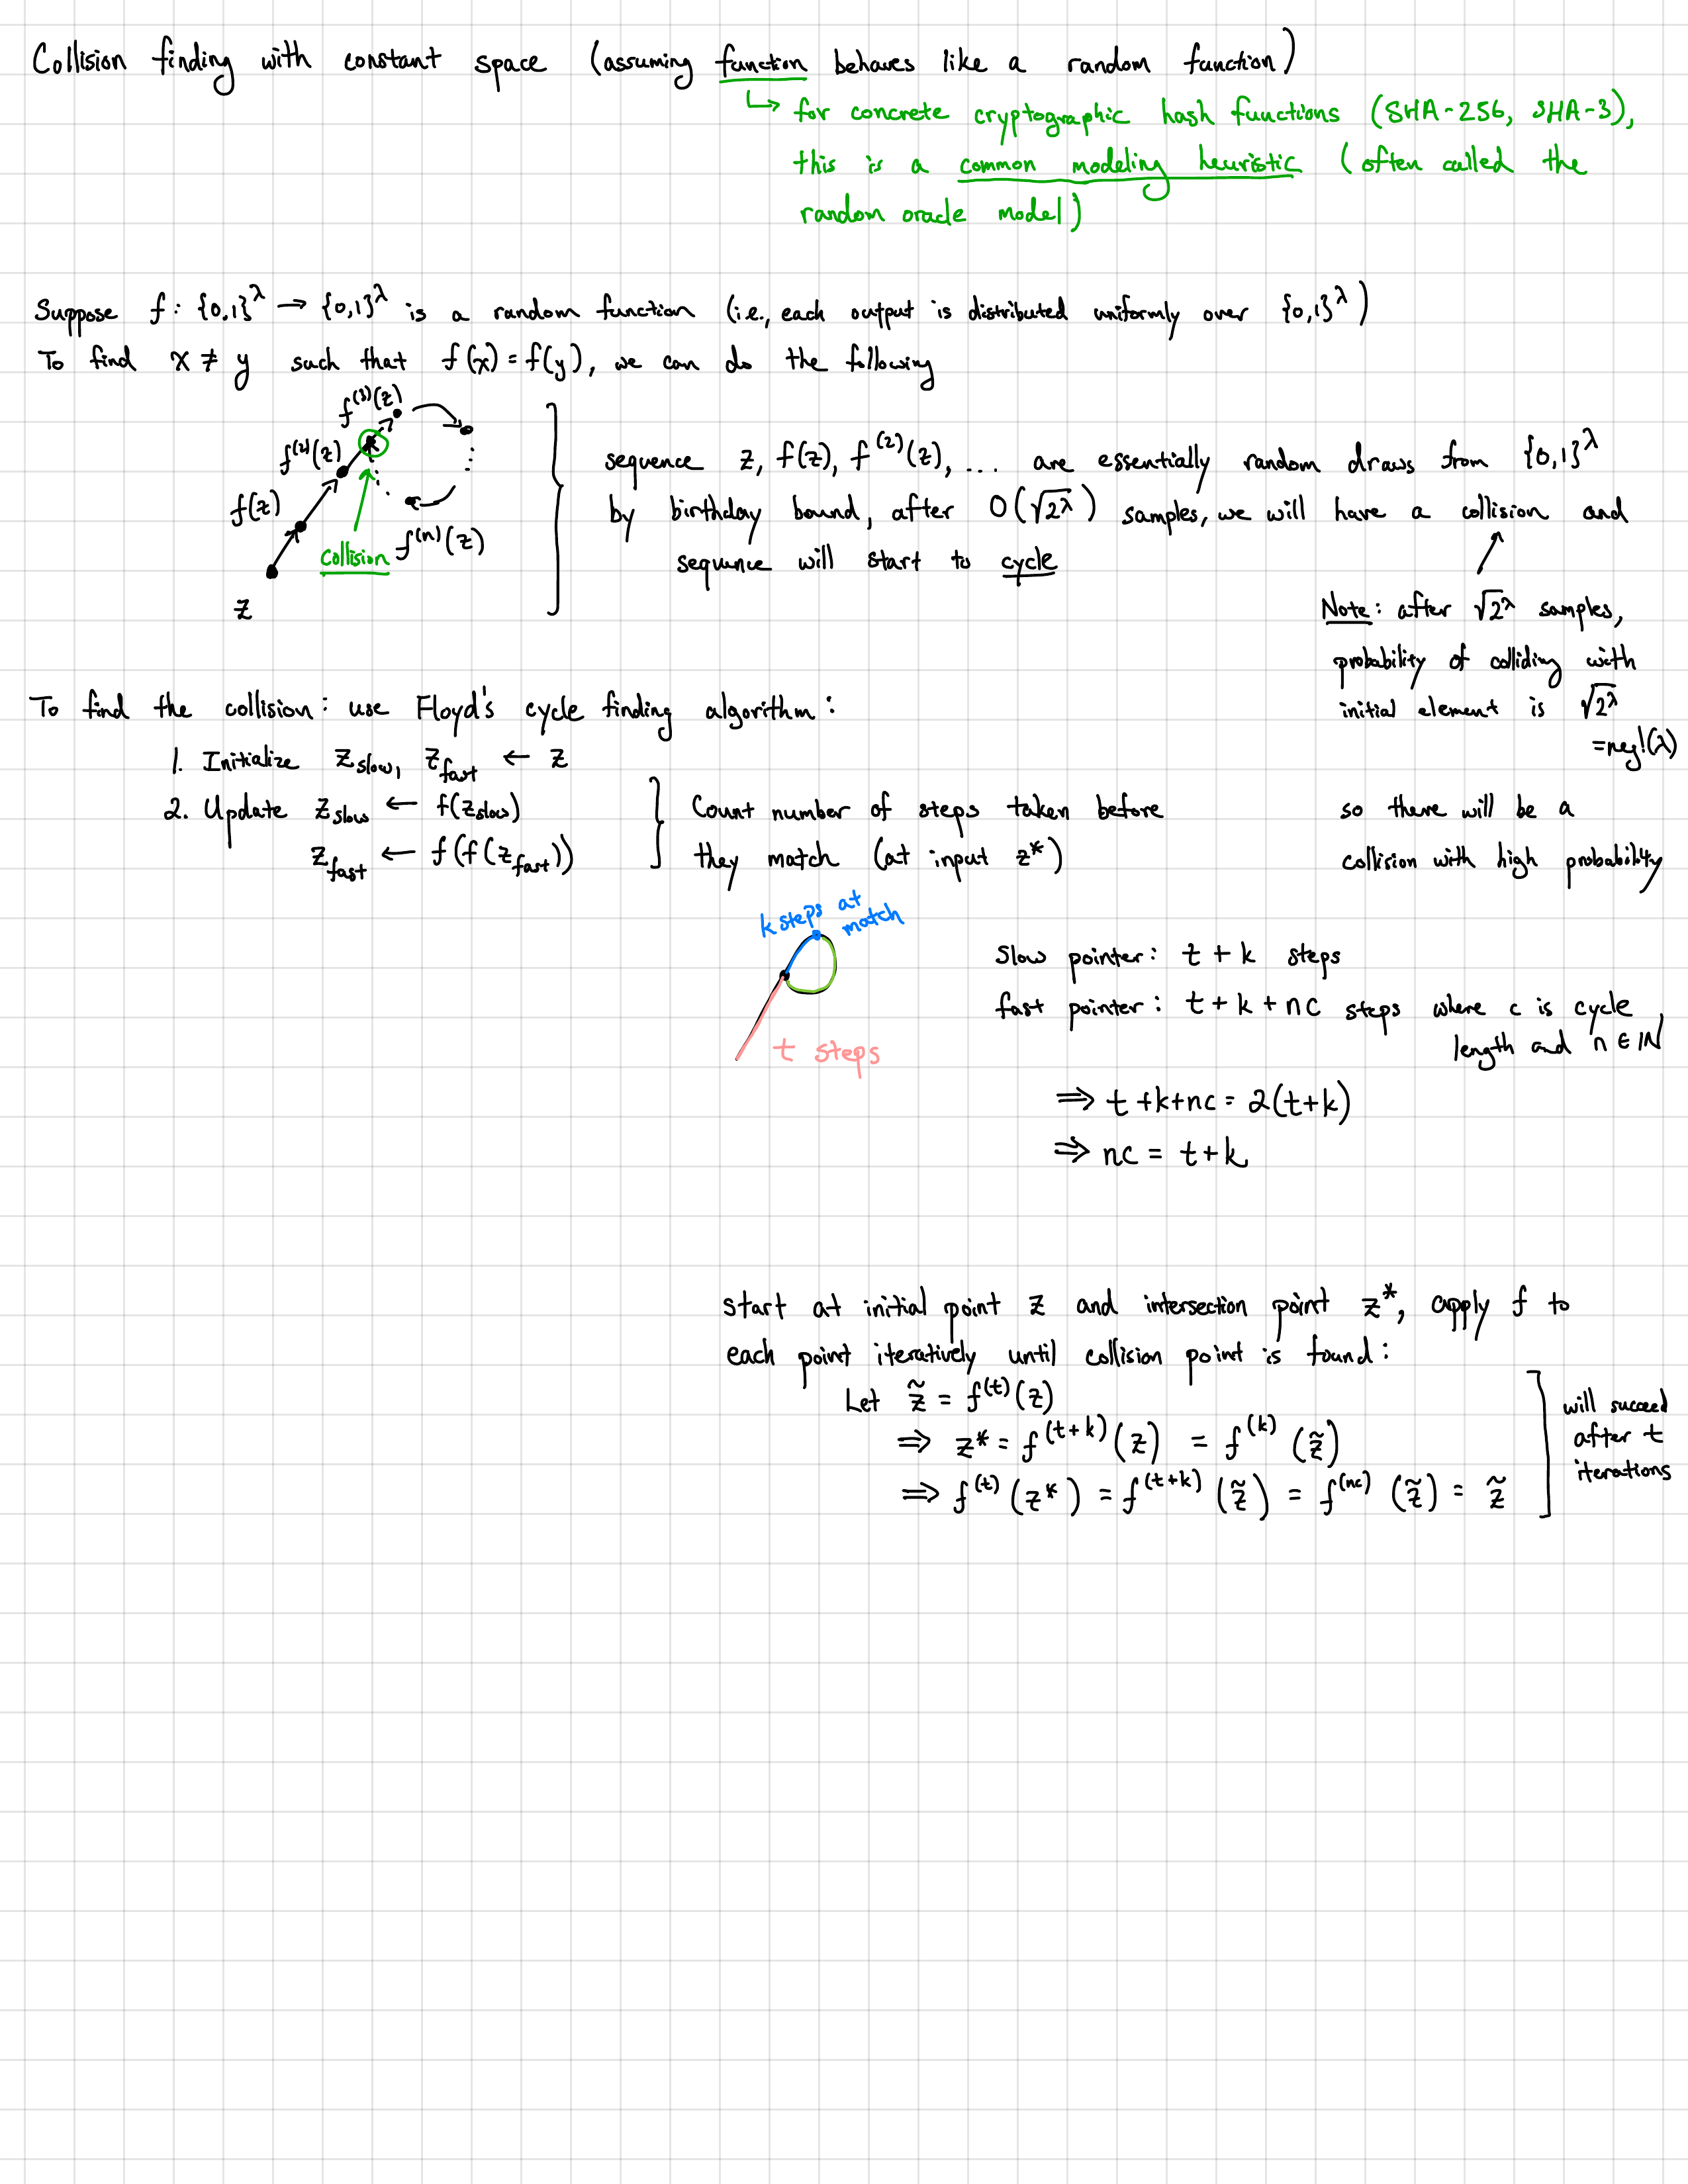 Collision finding with constant space (assuming function behaves like a random function)
↳ for concrete cryptographic hash functions (SHA-256, SHA-3),
this is a common modeling heuristic (often called the
random oracle model)
Suppose f: {0,1}^λ → {0,1}^λ is a random function (i.e., each output is distributed uniformly over {0,1}^λ)
To find x ≠ y such that f(x) = f(y), we can do the following
f^(3)(z)
f^(2)(z)
f(z)
collision
f^(n)(z)
z
sequence z, f(z), f^(2)(z), ... are essentially random draws from {0,1}^λ
by birthday bound, after O(√2^λ) samples, we will have a collision and
sequence will start to cycle
Note: after √2^λ samples,
probability of colliding with
initial element is √2^λ
= negl(λ)
so there will be a
collision with high probability
To find the collision: use Floyd's cycle finding algorithm:
1. Initialize z_slow, z_fast ← z
2. Update z_slow ← f(z_slow)
z_fast ← f(f(z_fast))
Count number of steps taken before
they match (at input z*)
k steps at
match
t steps
Slow pointer: t + k steps
fast pointer: t + k + nc steps where c is cycle
length and n ∈ ℕ
⇒ t + k + nc = 2(t+k)
⇒ nc = t + k
Start at initial point z and intersection point z*, apply f to
each point iteratively until collision point is found:
Let z̃ = f^(t)(z)
⇒ z* = f^(t+k)(z) = f^(k)(z̃)
⇒ f^(t)(z*) = f^(t+k)(z̃) = f^(nc)(z̃) = z̃
will succeed
after t
iterations